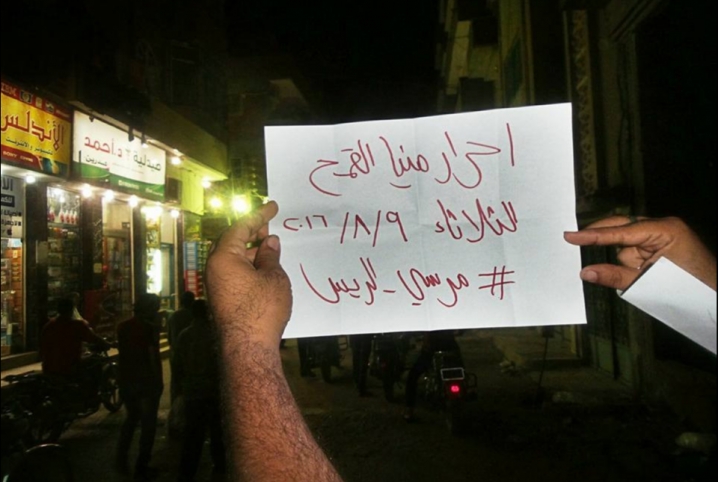 الأندلس
صيدلية د.أحمد
احرار منيا القمح
الثلاثاء ٢٠١٦/٨/٩
# مرسي_الريس